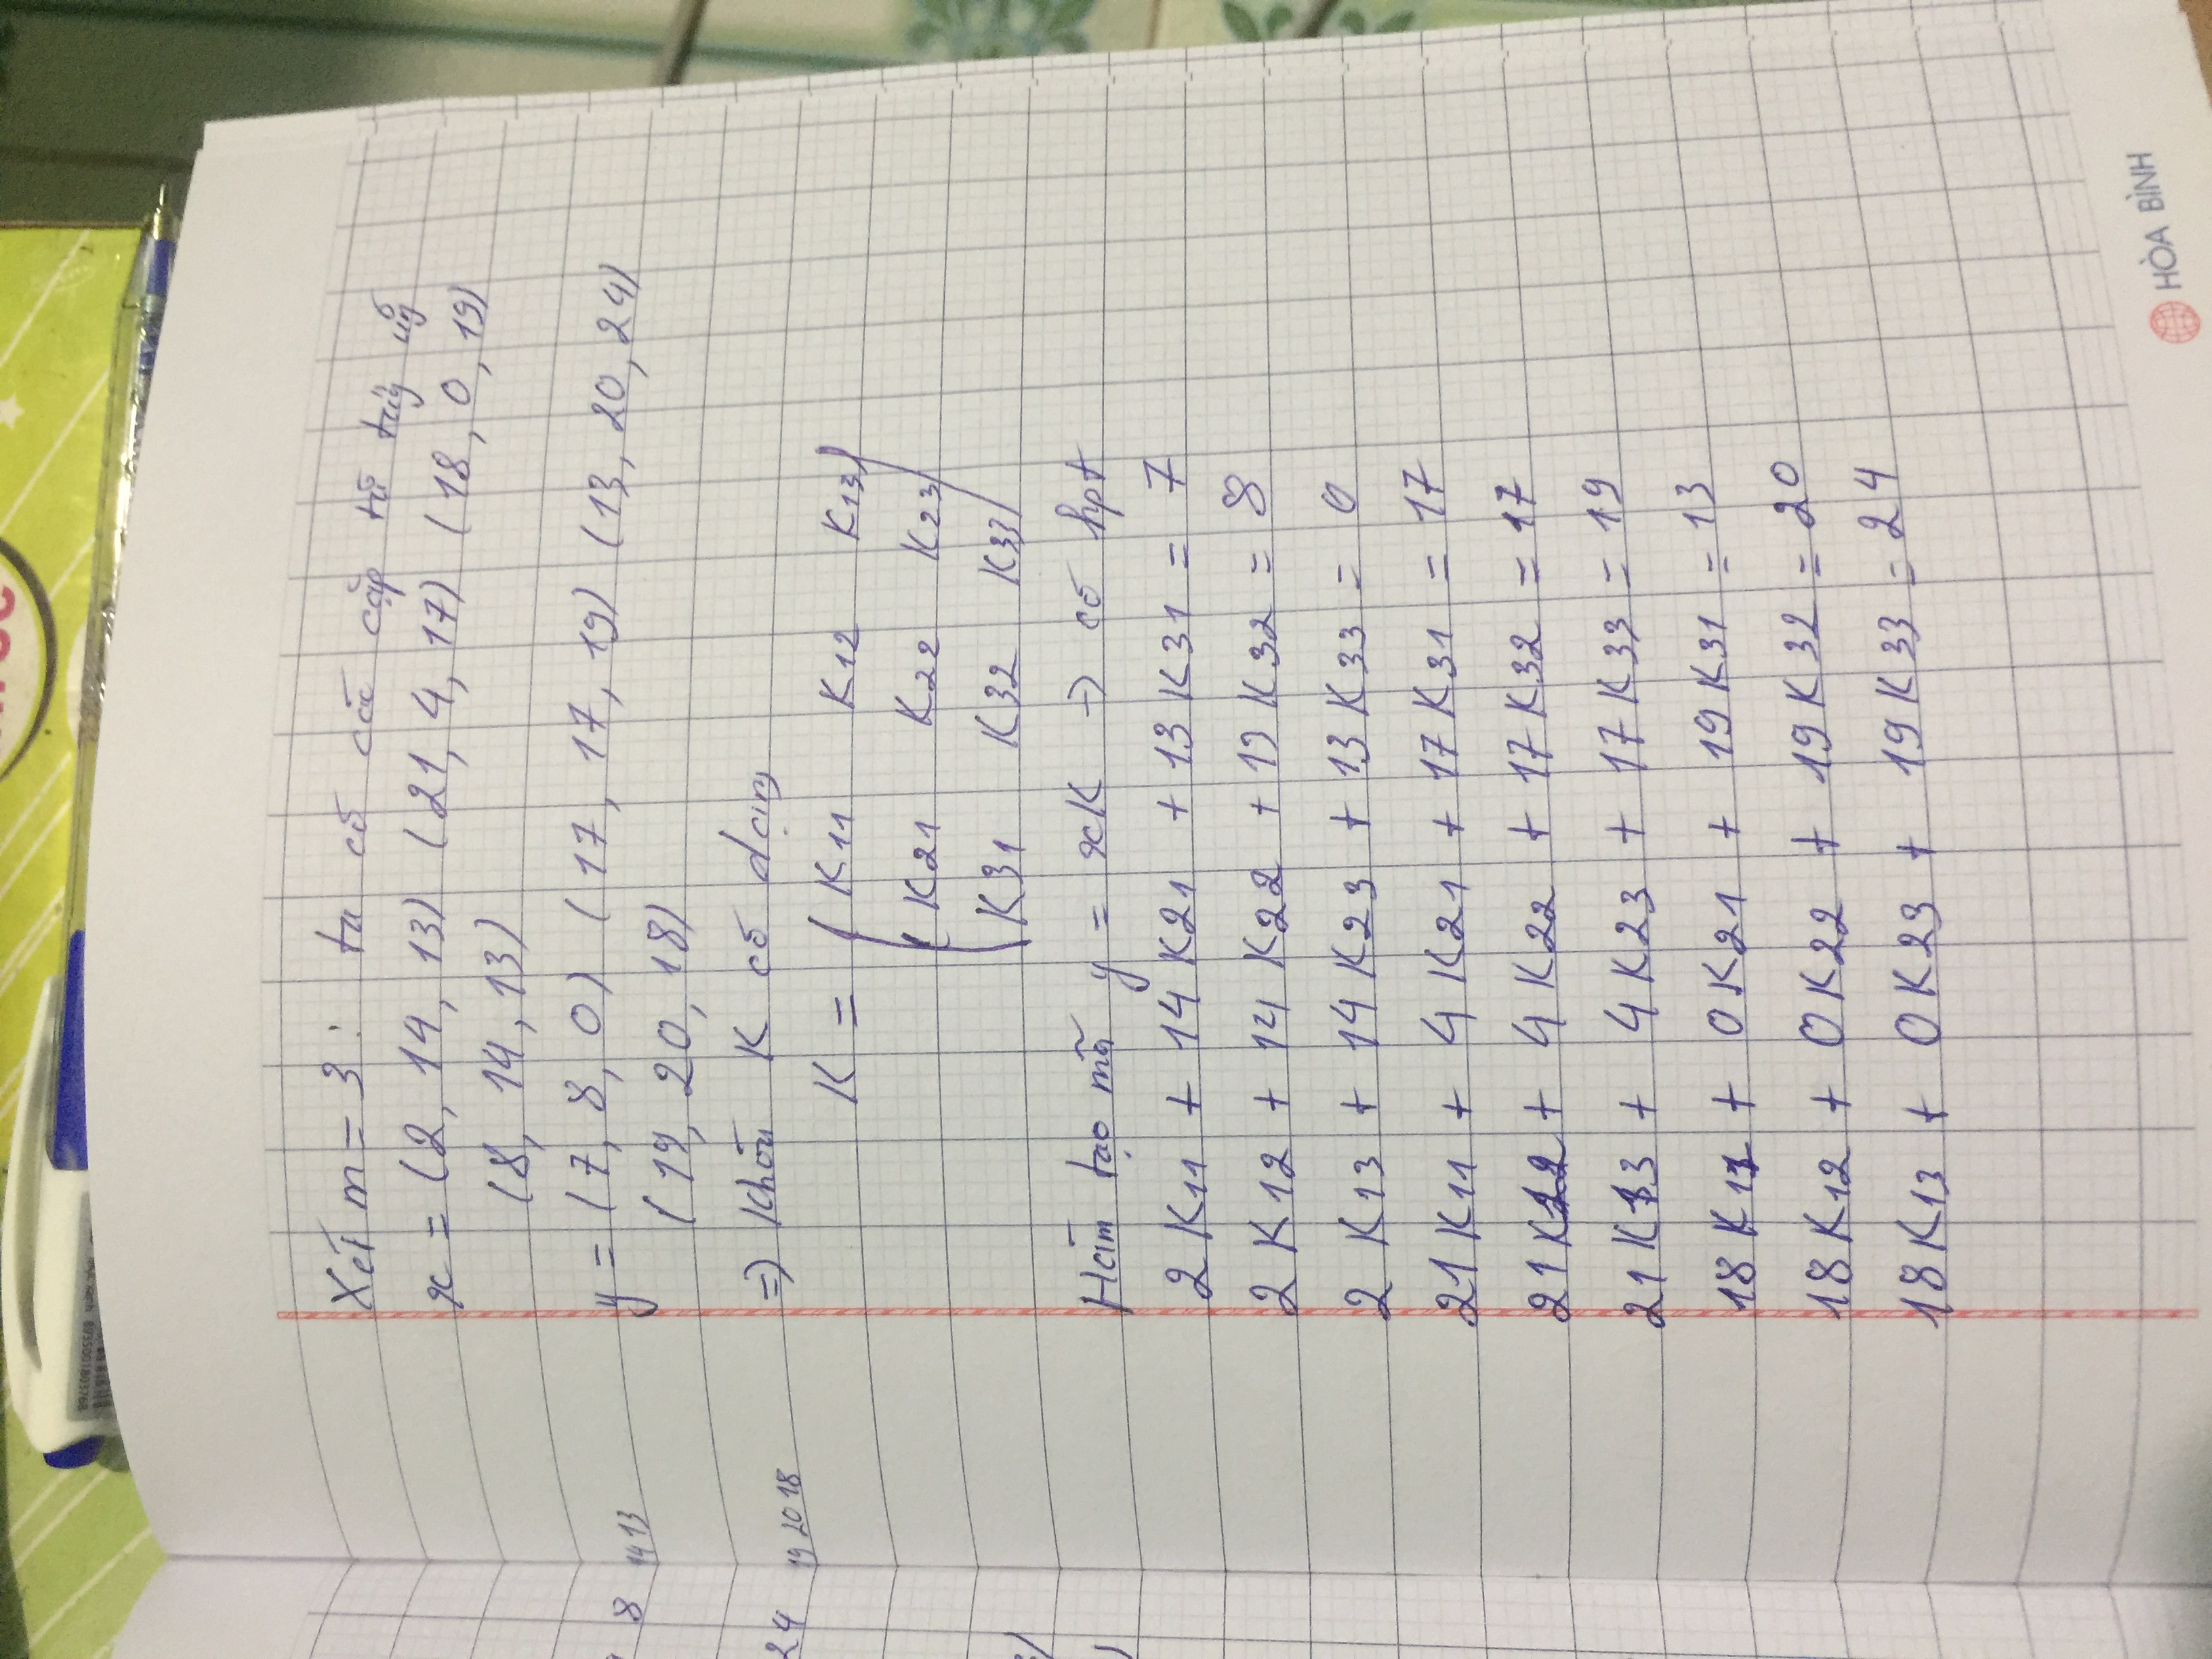 8 14 13
24 19 20 18
Xét m = 3 : ta có các cặp từ tứng
x = (2, 14, 13) (21, 4, 17) (18, 0, 19)
(8, 14, 13)
y = (7, 8, 0) (17, 17, 19) (13, 20, 24)
(19, 20, 18)
=> Khóa K có dạng
K = ( K11 K12 K13 )
( K21 K22 K23 )
( K31 K32 K33 )
Hàm tạo mã y = xK -> có hpt
2 K11 + 14 K21 + 13 K31 = 7
2 K12 + 14 K22 + 13 K32 = 8
2 K13 + 14 K23 + 13 K33 = 0
21 K11 + 4 K21 + 17 K31 = 17
21 K12 + 4 K22 + 17 K32 = 17
21 K13 + 4 K23 + 17 K33 = 19
18 K11 + 0 K21 + 19 K31 = 13
18 K12 + 0 K22 + 19 K32 = 20
18 K13 + 0 K23 + 19 K33 = 24
HÒA BÌNH
8935001803768